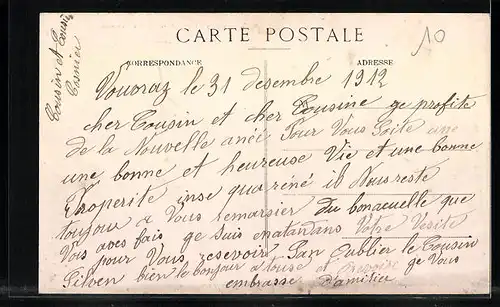 CARTE POSTALE
CORRESPONDANCE
ADRESSE
10
Cousin et Cousine
Vouvray le 31 desembre 1912
cher Cousin et cher Cousine ge profite
de la Nouvelle anée Pour Vous Soite une
une bonne et heureuse Vie et une bonne
Properité inse qua réné il Nous reste
toujou a Vous remarsier du bonacuelle que
Vous aves fais ge Suis enatandans Votre Vesite
pour Vous resevoir San Oublier le Cousin
Silven bien le bonjour a touse et ge Vous
embrasse d'amitié